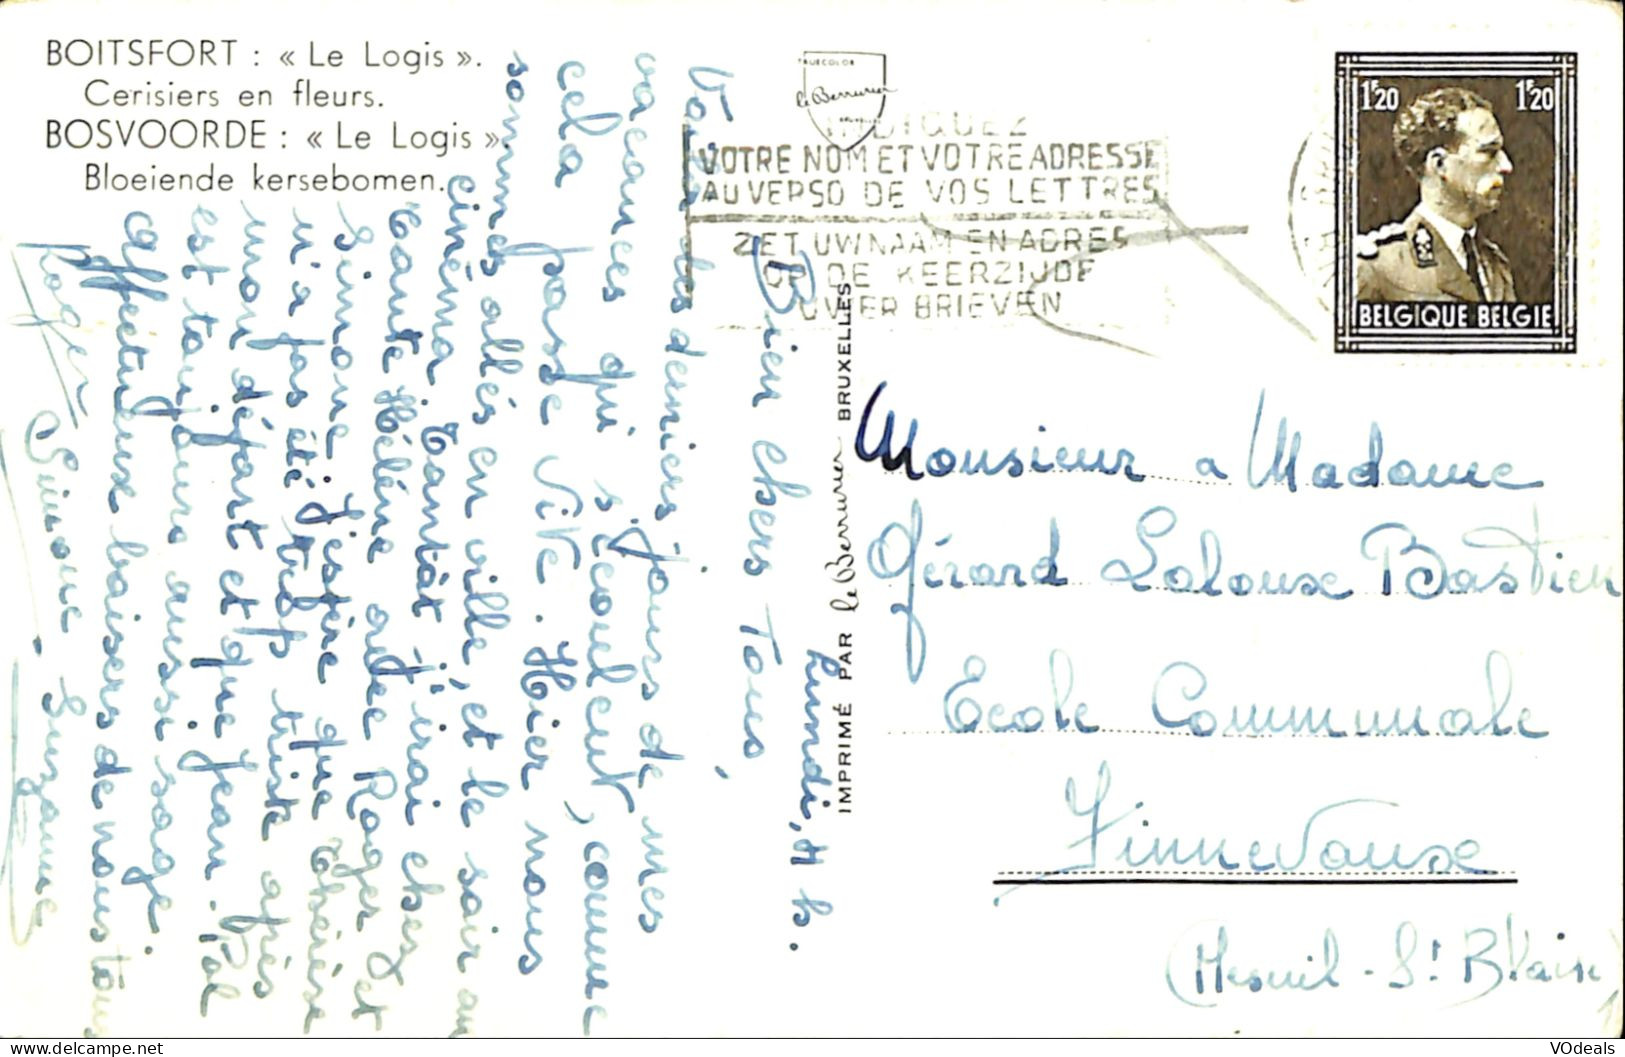 BOITSFORT : « Le Logis ».
Cerisiers en fleurs.
BOSVOORDE : « Le Logis ».
Bloeiende kersebomen.
TRUECOLOR
le Berrurier
BRUXELLES
INDIQUEZ
VOTRE NOM ET VOTRE ADRESSE
AU VERSO DE VOS LETTRES
ZET UW NAAM EN ADRES
OP DE KEERZIJDE
UWER BRIEVEN
1F20 1F20
BELGIQUE BELGIE
IMPRIMÉ PAR le Berrurier BRUXELLES
Lundi, 4 h.
Bien chers Tous,
Voici les derniers jours de mes
vacances qui s'écoulent, comme
cela passe vite. Hier nous
sommes allés en ville, et le soir au
cinéma. Tantôt j'irai chez
tante Hélène avec Roger et
Simone. J'espère que chérése
n'a pas été trop triste après
mon départ et que Jean-Pol
est toujours aussi sage.
Affectueux baisers de nous tous
Roger Simone Suzanne
Monsieur a Madame
Gérard Laloux Bastien
Ecole Communale
Finnevaux
(Mesnil-St Blaise)
© VOdeals